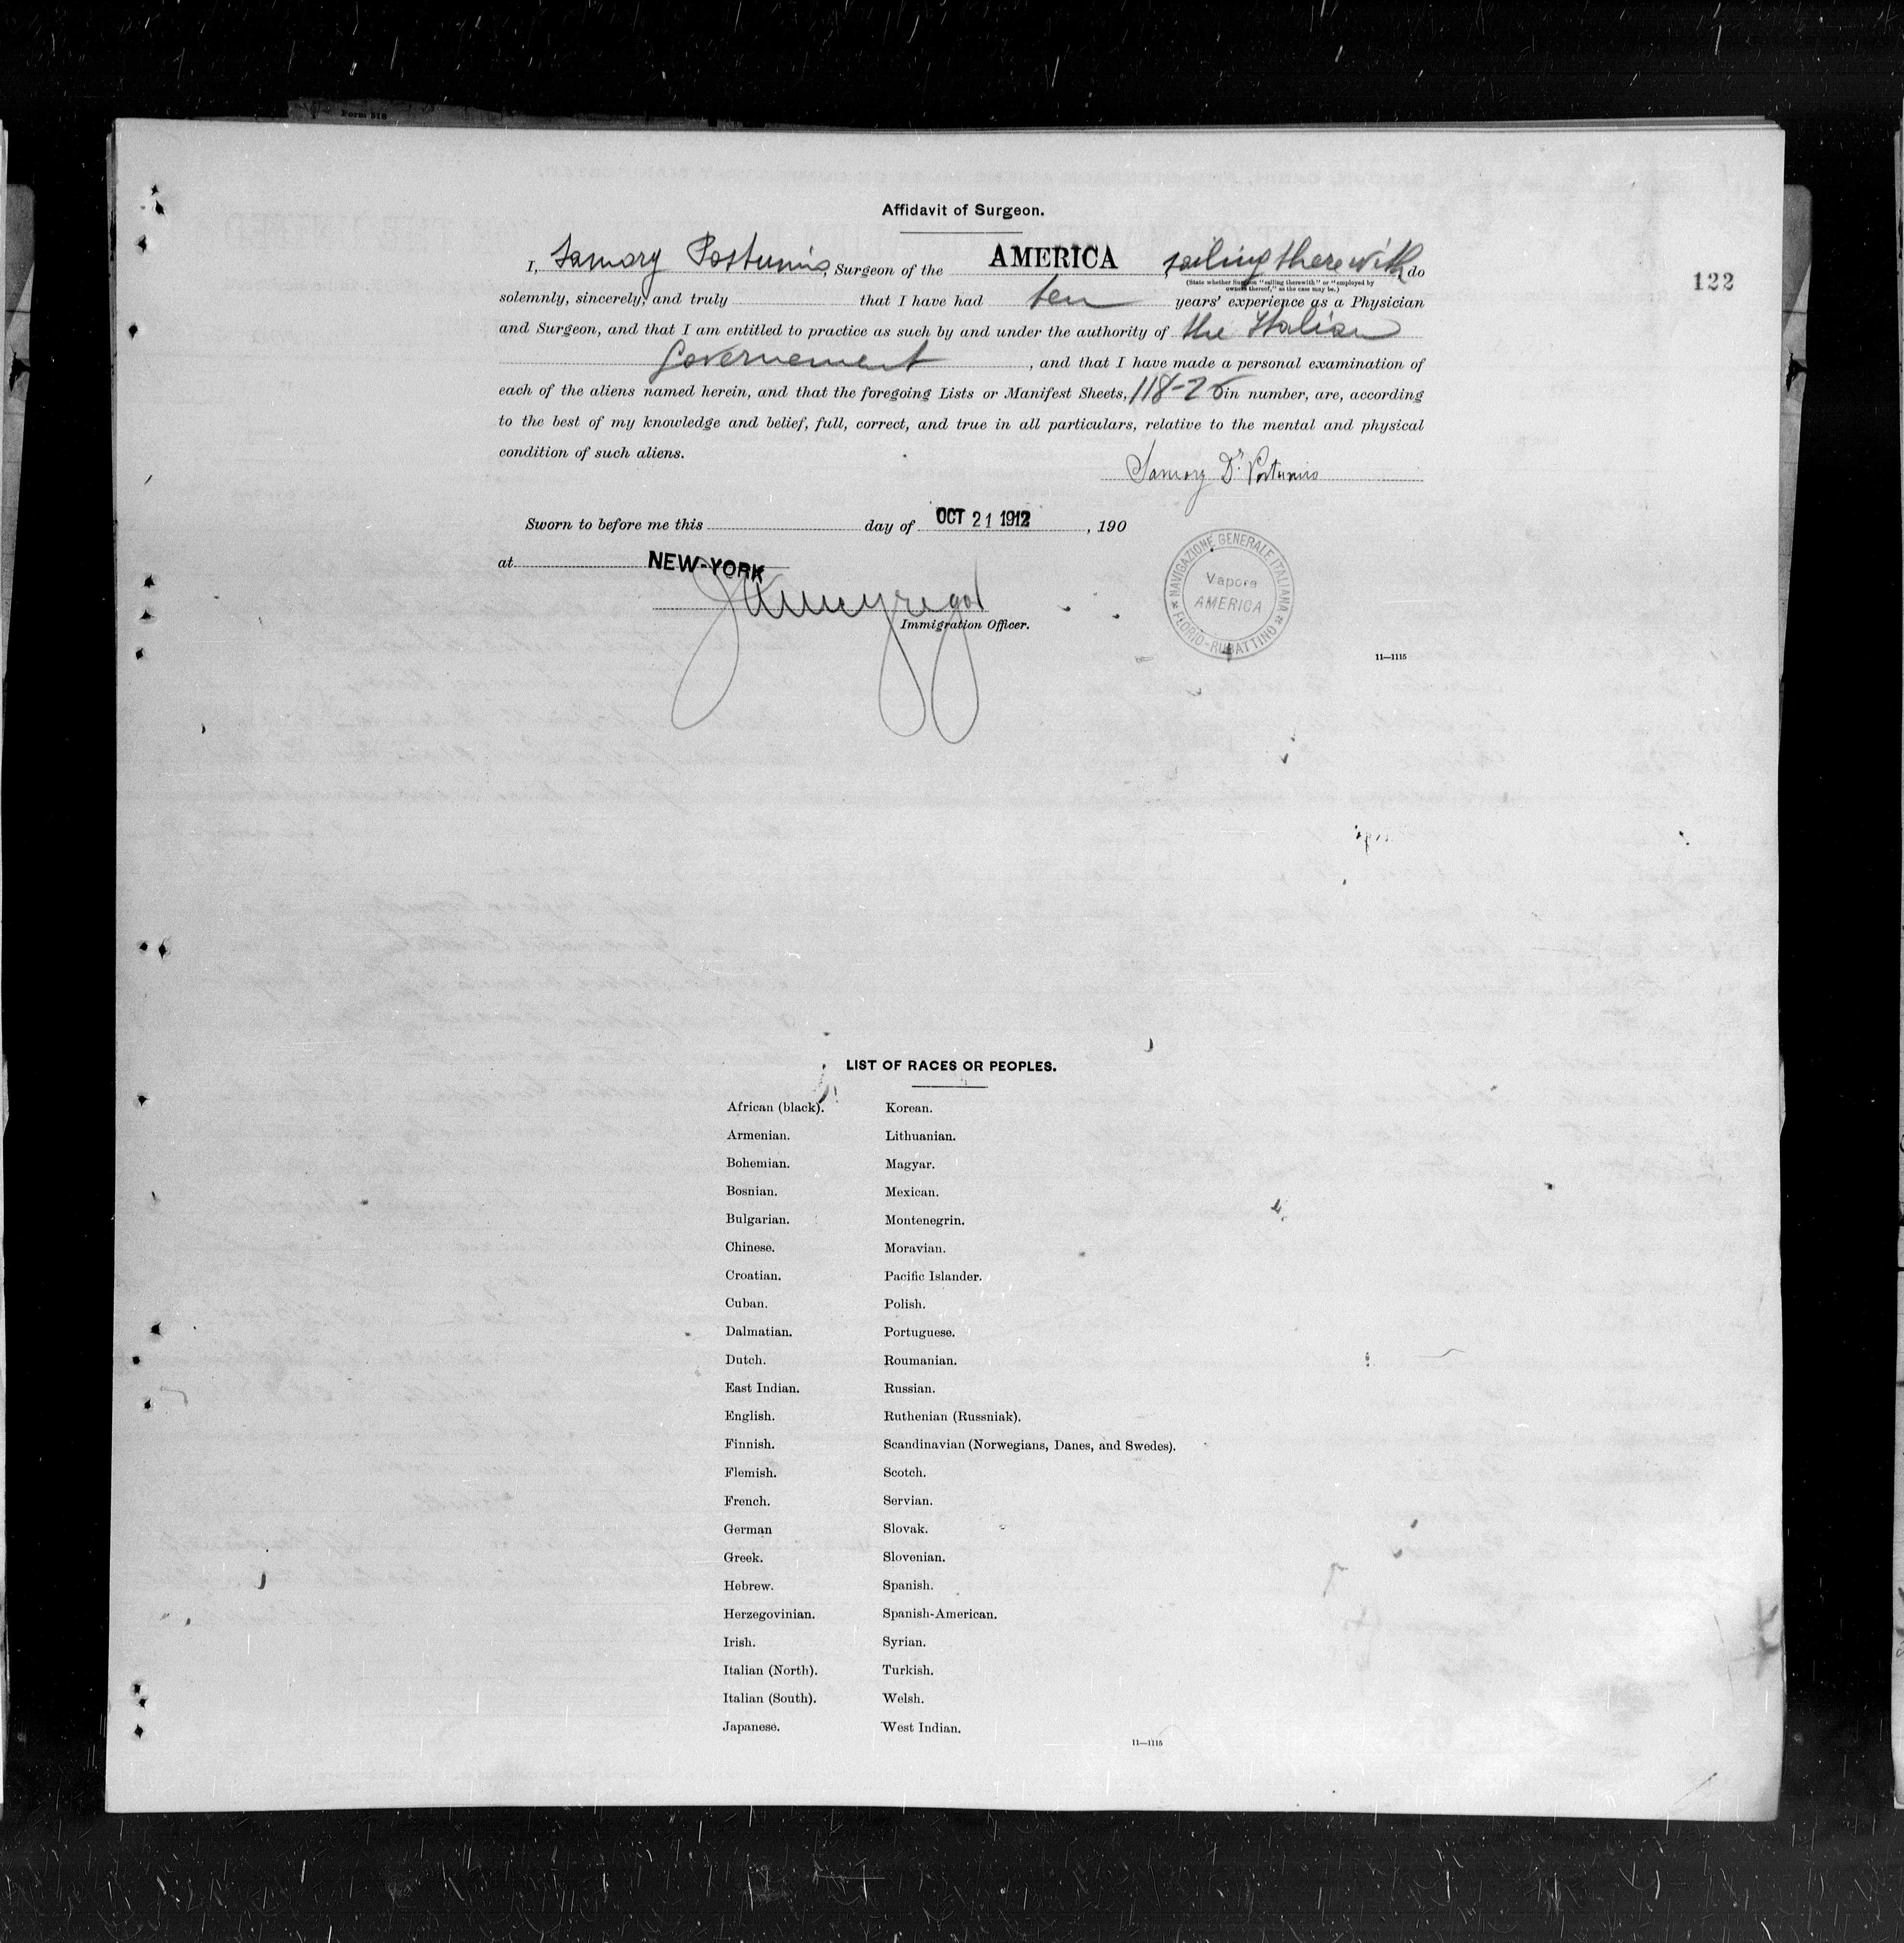 Form 518
Affidavit of Surgeon.
I, Samory Postumio, Surgeon of the AMERICA sailing therewith do
(State whether Surgeon "sailing therewith" or "employed by
owners thereof," as the case may be.)
122
solemnly, sincerely, and truly that I have had ten years' experience as a Physician
and Surgeon, and that I am entitled to practice as such by and under the authority of the Italian
Governement, and that I have made a personal examination of
each of the aliens named herein, and that the foregoing Lists or Manifest Sheets, 118-25 in number, are, according
to the best of my knowledge and belief, full, correct, and true in all particulars, relative to the mental and physical
condition of such aliens.
Samory Dr. Postumio
Sworn to before me this day of OCT 21 1912, 190
at NEW-YORK
Immigration Officer.
NAVIGAZIONE GENERALE ITALIANA
Vapore
AMERICA
FLORIO-RUBATTINO
11—1115
LIST OF RACES OR PEOPLES.
African (black). Korean.
Armenian. Lithuanian.
Bohemian. Magyar.
Bosnian. Mexican.
Bulgarian. Montenegrin.
Chinese. Moravian.
Croatian. Pacific Islander.
Cuban. Polish.
Dalmatian. Portuguese.
Dutch. Roumanian.
East Indian. Russian.
English. Ruthenian (Russniak).
Finnish. Scandinavian (Norwegians, Danes, and Swedes).
Flemish. Scotch.
French. Servian.
German Slovak.
Greek. Slovenian.
Hebrew. Spanish.
Herzegovinian. Spanish-American.
Irish. Syrian.
Italian (North). Turkish.
Italian (South). Welsh.
Japanese. West Indian.
11—1115